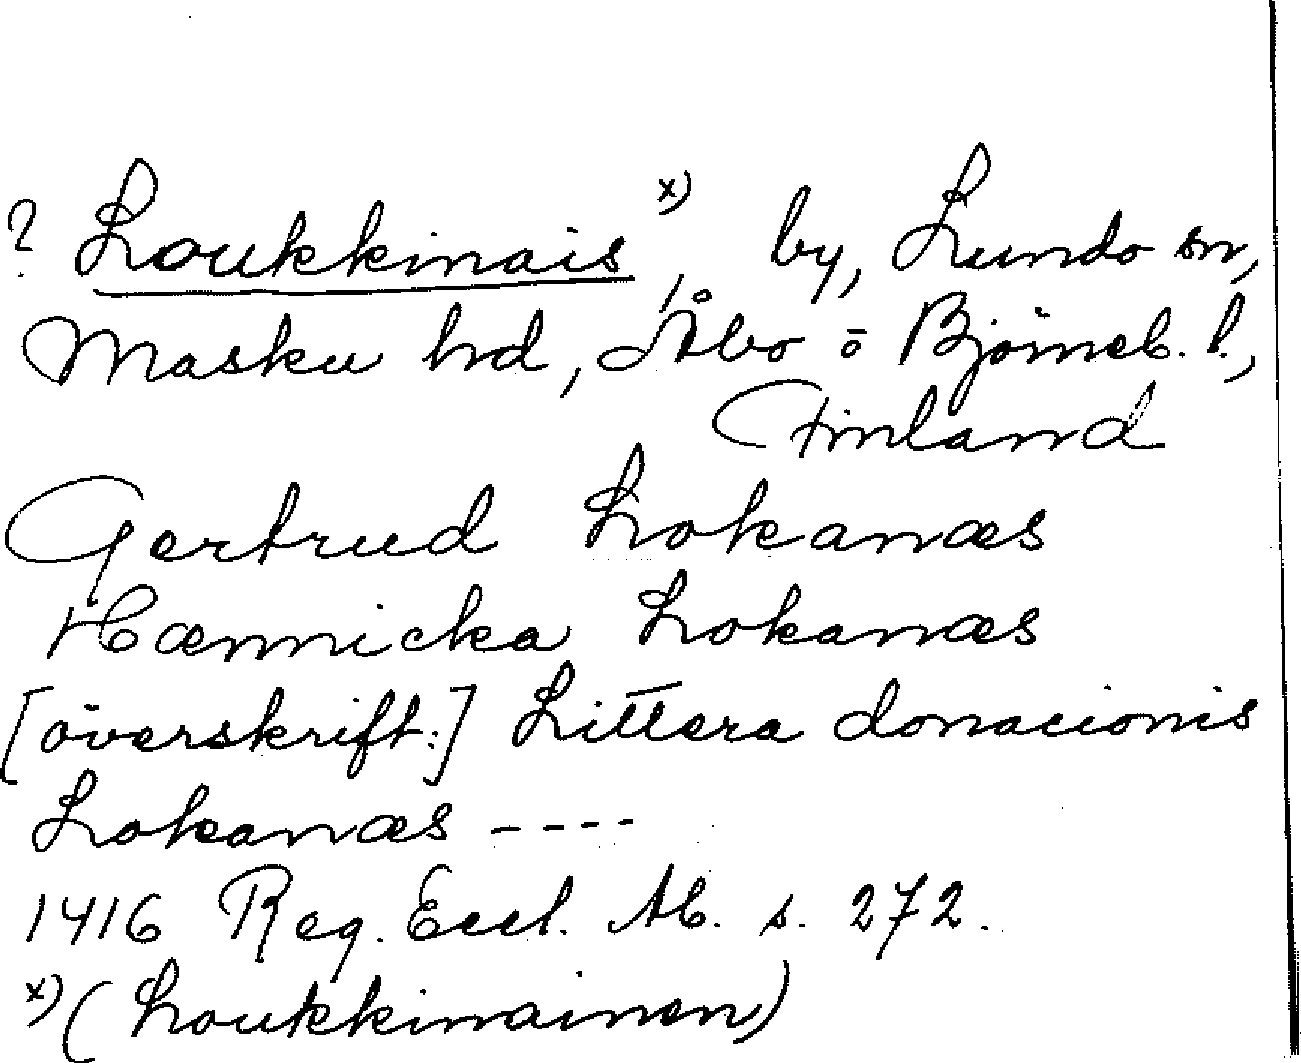 ? Loukkinais x), by, Lundo sn,
Masku hd, Åbo o Björneb. l.,
Finland
Gertrud Lokanæs
Hænnicka Lokanæs
[överskrift:] Littera donacionis
Lokanæs ----
1416 Reg. Eccl. Ab. s. 272.
x) (Loukkinainen)